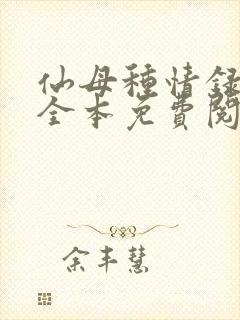 仙母種情錄
全本免費閱
余丰慧